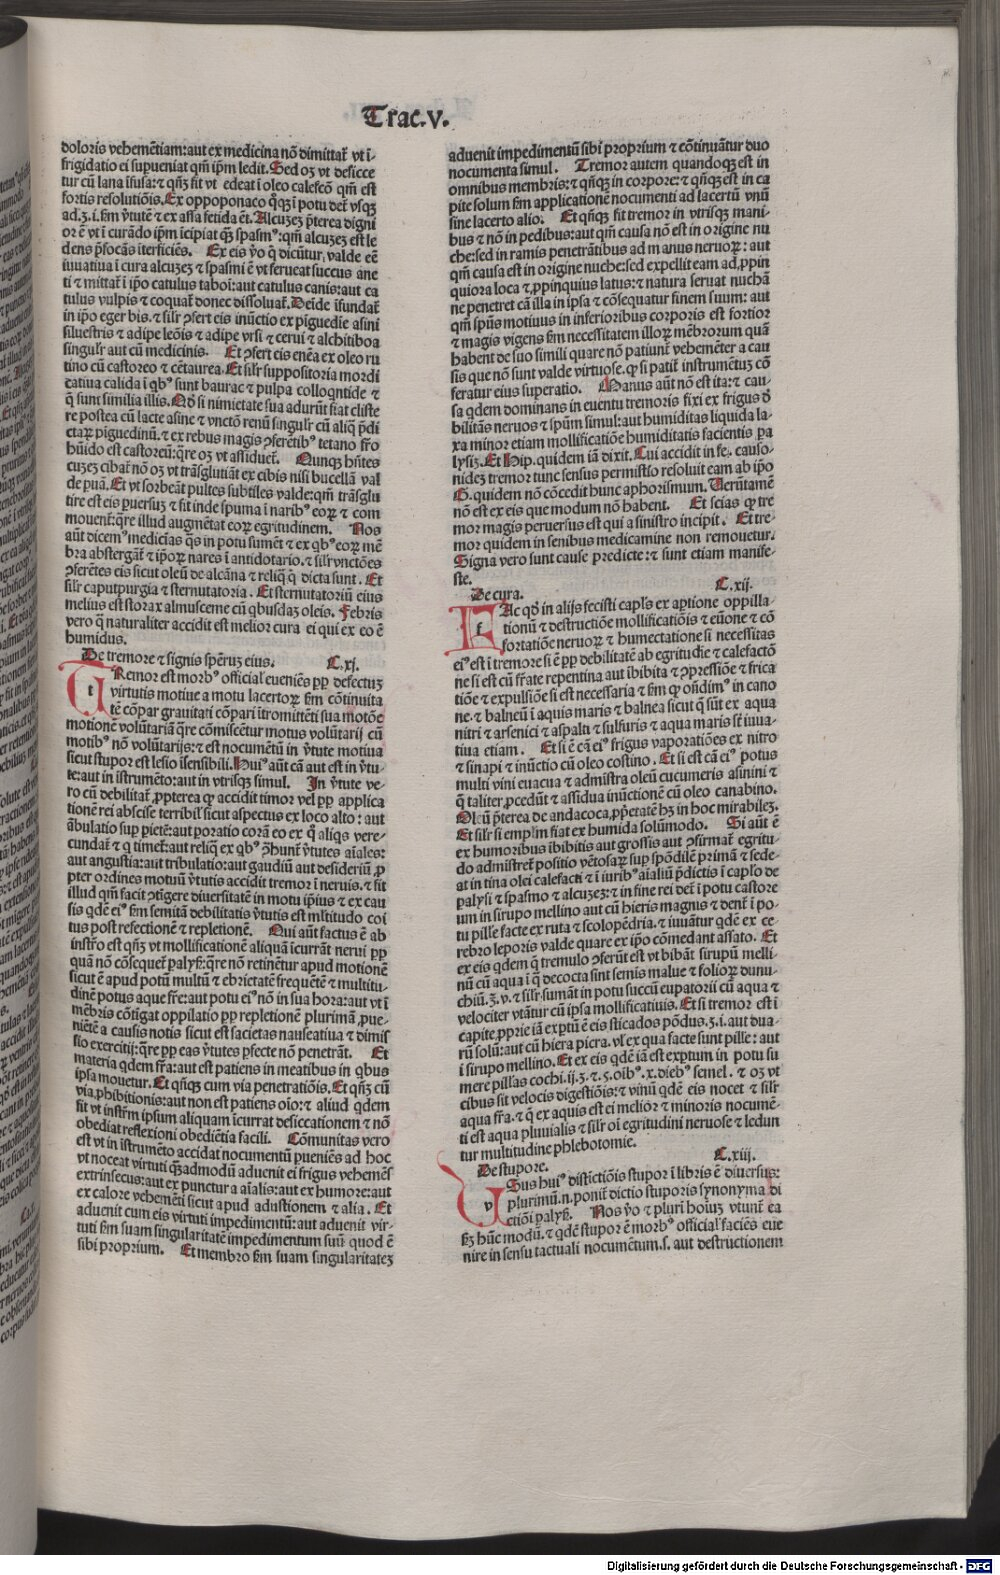 Trac.V.
doloris vehemẽtiam:aut ex medicina nõ dimittat̃ vt ĩ-
frigidatio ei suꝑueniat qm̃ ip̃m ledit. Sed oꝫ vt desicce
tur cũ lana ĩfusa:⁊ qñꝫ fit vt edeat ĩ oleo calefcõ qm̃ est
fortis resolutiõis. Ex oppoponaco q̃ꝫ ĩ potu det̃ vsqꝫ
ad.ʒ.i.fm̃ ṽtutẽ ⁊ ex assa fetida ẽt. Alcuzeꝫ p̃terea digni
or ẽ vt ĩ curãdo ip̃m ĩcipiat q̃ꝫ spasmꝰ:qm̃ alcuzeꝫ est le
dens p̃focãs ĩterficiẽs. Ex eis ṽo q̃ dicũtur, valde eẽ
iuuatiua ĩ cura alcuzeꝫ ⁊ spasmi ẽ vt ferueat succus ane
ti ⁊ mittat̃ ĩ ip̃o catulus taboi:aut catulus canis:aut ca
tulus vulpis ⁊ coquat̃ donec dissoluat̃. Deĩde ĩfundat̃
in ip̃o eger bis. ⁊ sil̃r ꝯfert eis inũctio ex pĩguedie asini
siluestris ⁊ adipe leõis ⁊ adipe vrsi ⁊ cerui ⁊ alchitiboa
singul̃r aut cũ medicinis. Et ꝯfert eis enẽa ex oleo ru
tino cũ castoreo ⁊ cẽtaurea. Et sil̃r suppositoria mordi
catiua calida ĩ qbꝰ sunt baurac ⁊ pulpa colloqntide ⁊
q̃ sunt similia illis. Qđ si nimietate sua adurũt fiat cliste
re postea cũ lacte asine ⁊ vnctõ renũ singul̃r cũ aliq̃ p̃di
ctaꝝ pĩguedinũ. ⁊ ex rebus magis ꝯferẽtibꝰ tetano s̃ro
hũido est castoreũ:qre oꝫ vt assiduet̃. Nunqꝫ hñtes
cuzeꝫ cibat̃ nõ oꝫ vt trãsglutiãt ex cibis nisi bucellã val
de puã. Et vt sorbeãt pultes subtiles valde:qm̃ trãsglu
tire est eis puersuꝫ ⁊ fit inde spuma ĩ naribꝰ eoꝝ ⁊ com
mouent̃:qre illud augmẽtat eoꝝ egritudinem. Nos
aũt dicemꝰ medicĩas q̃s in potu sumẽt ⁊ ex qbꝰ eoꝝ mẽ
bra abstergãt̃ ⁊ ip̃oꝝ nares ĩ antidotario. ⁊ sil̃r vnctões
ꝯferẽtes eis sicut oleũ de alcãna ⁊ reliq̃ q̃ dicta sunt. Et
sil̃r caputpurgia ⁊ sternutatoria. Et sternutatoriũ eius
melius est storax almusceme cũ qbusdaꝫ oleis. Febris
vero q̃ naturaliter accidit est melior cura ei qui ex eo ẽ
humidus.
De tremore ⁊ signis spẽruꝫ eius. C.xj.
TRemor est morbꝰ official̃ eueniẽs pp̃ defectuꝫ
virtutis motiue a motu lacertoꝝ fm̃ cõtinuita
tẽ cõpar grauitati cõpari ĩtromittẽti sua motõe
motionẽ volũtariã qre cõmiscẽtur motus volũtarij cũ
motibꝰ nõ volũtarijs:⁊ est nocumẽtũ in ṽtute motiua
sicut stupor est lesio ĩsensibili. Huiꝰ aũt cã aut est in ṽtu-
te:aut in ĩstrumẽto:aut in vtrisqꝫ simul. In ṽtute ve-
ro cũ debilitat̃ ꝓpterea qꝛ accidit timor vel pp̃ applica
tionẽ rei abscise terribil̃ sicut aspectus ex loco alto : aut
ãbulatio sup̃ pietẽ:aut ꝓratio corã eo ex q̃ aliq̃s vere-
cundat̃ ⁊ q̃ timet̃:aut reliq̃ ex qbꝰ ꝓhunt̃ ṽtutes aĩales:
aut angustia:aut tribulatio:aut gaudiũ aut desideriũ ꝓ
pter ordines motuũ ṽtutis accidit tremor ĩ neruis. ⁊ fit
illud qm̃ facit ꝯtĩgere diuersitatẽ in motu ip̃ius ⁊ ex cau
sis qdẽ eiꝰ fm̃ semitã debilitatis ṽtutis est ml̃titudo coi
tus post refectionẽ ⁊ repletionẽ. Qui aũt factus ẽ ab
instr̃o est qñꝫ vt mollificationẽ aliquã ĩcurrãt nerui pp̃
quã nõ cõsequet̃ palyẜ:qre nõ retinẽtur apud motionẽ
sicut ẽ apud potũ multũ ⁊ ebrietatẽ frequẽtẽ ⁊ multitu-
dinẽ potus aque fr̃e:aut potu eiꝰ nõ in sua hora:aut vt ĩ
mẽbris cõtigat oppilatio pp̃ repletionẽ plurimã ꝓue-
niẽtẽ a causis notis sicut est sacietas nauseatiua ⁊ dimis
sio exercitij:qre pp̃ eas ṽtutes ꝑfecte nõ penetrãt. Et
materia qdem fr̃a:aut est patiens in meatibus in qbus
ipsa mouetur. Et qñqꝫ cum via penetratiõis. Et qñꝫ cũ
via ꝓhibitionis:aut non est patiens oĩo:⁊ aliud qdem
fit vt instr̃m ipsum aliquam ĩcurrat desiccationem ⁊ nõ
obediat reflexioni obediẽtia facili. Cõmunitas vero
est vt in ĩstrumẽto accidat nocumẽtũ pueniẽs ad hoc
vt noceat virtuti qẽadmodũ aduenit ei frigus vehemẽs
extrinsecus:aut ex punctur a aĩalis:aut ex humore:aut
ex calore vehemẽti sicut apud adustionem ⁊ alia. Et
aduenit cum eis virtuti impedimentum:aut aduenit vir-
tuti fm̃ suam singularitatẽ impedimentum suũ quod ẽ
sibi proprium. Et membro fm̃ suam singularitateꝫ
aduenit impedimentũ sibi proprium ⁊ cõtinuãtur duo
nocumenta simul. Tremor autem quandoqꝫ est in
omnibus membris:⁊ qñqꝫ in corpore:⁊ qñqꝫ est in ca
pite solum fm̃ applicationẽ nocumenti ad lacertũ vnũ
sine lacerto alio. Et qñqꝫ fit tremor in vtrisqꝫ mani-
bus ⁊ nõ in pedibus:aut qm̃ causa nõ est in origine nu
che:sed in ramis penetrãtibus ad manus neruoꝝ : aut
qm̃ causa est in origine nuche:sed expellit eam ad ꝓpin
quiora loca ⁊ ꝓpinquius latus:⁊ natura seruat nuchã
ne penetret cã illa in ipsa ⁊ cõsequatur finem suum: aut
qm̃ spũs motiuus in inferioribus corporis est fortior
⁊ magis vigens fm̃ necessitatem illoꝝ mẽbrorum quã
habent de suo simili quare nõ patiunt̃ vehemẽter a cau
sis que nõ sunt valde virtuose. qꝛ si patit̃ instrumẽtuꝫ cõ
feratur eius superatio. Manus aũt nõ est ita:⁊ cau-
sa qdem dominans in euentu tremoris fixi ex frigus d̃
bilitãs neruos ⁊ spũm simul:aut humiditas liquida la-
xa minor etiam mollificatiõe humiditatis facientis pa
lysiꝫ. Et Hip. quidem iã dixit. Cui accidit in fe. causo-
nideꝫ tremor tunc sensus permistio resoluit eam ab ip̃o
G. quidem nõ cõcedit hunc aphorismum. Ueritamẽ
nõ est ex eis que modum non habent. Et scias qꝛ tre
mor magis peruersus est qui a sinistro incipit. Et tre-
mor quidem in senibus medicamine non remouetur.
Signa vero sunt cause predicte:⁊ sunt etiam manife-
ste.
De cura. C.xij.
FAc qđ in alijs fecisti capl̃s ex aptione oppilla-
tionũ ⁊ destructiõe mollificatiõis ⁊ euõne ⁊ cõ
fortatiõe neruoꝝ ⁊ humectatione si necessitas
eiꝰ est ĩ tremore si ẽ pp̃ debilitatẽ ab egritudie ⁊ calefactõ
ne si est cũ fr̃ate repentina aut ĩbibita ⁊ ꝯpressiõe ⁊ frica
tiõe ⁊ expulsiõe si est necessaria ⁊ fm̃ qꝛ oñdim̃ꝰ in cano
ne. ⁊ balneũ ĩ aquis maris ⁊ balnea sicut q̃ sũt ex aqua
nitri ⁊ arsenici ⁊ aspalti ⁊ sulfuris ⁊ aqua maris st̃ iuua-
tiua etiam. Et si ẽ cã eiꝰ frigus vaporatiões ex nitro
⁊ sinapi ⁊ inũctio cũ oleo costino. Et si est cã eiꝰ potus
multi vini euacua ⁊ admistra oleũ cucumeris asinini ⁊
q̃ taliter ꝓcedũt ⁊ assidua inũctionẽ cũ oleo canabino.
Oleũ p̃terea de andacoca ꝓp̃etatẽ hꝫ in hoc mirabileꝫ.
Et sil̃r si empl̃m fiat ex humida solũmodo. Si aũt ẽ
ex humoribus ĩbibitis aut grossis aut ꝯfirmat̃ egritu-
do admistret̃ positio vẽtosaꝝ sup̃ spõdilẽ primã ⁊ sede-
at in tina olei calefacti ⁊ ĩ iuribꝰ aĩaliũ p̃dictis ĩ capl̃o de
palysi ⁊ spasmo ⁊ alcuzeꝫ:⁊ in fine rei det̃ ĩ potu castore
um in sirupo mellino aut cũ hieris magnis ⁊ dent̃ ĩ po-
tu pille facte ex ruta ⁊ scolopẽdria. ⁊ iuuãtur qdẽ ex ce-
rebro leporis valde quare ex ip̃o cõmedant assato. Et
ex eis qdem q̃ tremulo ꝯferũt est vt bibãt sirupũ melli-
nũ cũ aqua ĩ q̃ decocta sint semis malue ⁊ folioꝝ dunu-
chiũ.ʒ.v.⁊ sil̃r sumãt in potu succũ eupatorii cũ aqua ⁊
velociter vtãtur cũ ipsa mollificatiuis. Et si tremor est ĩ
capite ꝓprie iã exptũ ẽ eis sticados põdus.ʒ.i.aut dua-
rũ solũ:aut cũ hiera picra. vl̃ ex qua facte sunt pille : aut
ĩ sirupo mellino. Et ex eis qdẽ iã est exptum in potu su
mere pill'as cochi.ij.ʒ.⁊.ʒ.oibꝰ.x.diebꝰ semel. ⁊ oꝫ vt
cibus sit velocis digestiõis:⁊ vinũ qdẽ eis nocet ⁊ sil̃r
aqua fr̃a.⁊ q̃ ex aquis est ei melior ⁊ minoris nocumẽ-
ti est aqua pluuialis ⁊ sil̃r oi egritudini neruose ⁊ ledun
tur multitudine phlebotomie.
De stupore. C.xiij.
VSus huiꝰ distĩctiõis stupor ĩ libris ẽ diuersus:
plurimũ.n.ponit̃ dictio stuporis synonyma di
ctiõi palyẜ. Nos ṽo ⁊ pluri hoĩuꝫ vtunt̃ ea
fꝫ hũc modũ. ⁊ qdẽ stupor ẽ morbꝰ official̃ faciẽs eue
nire in sensu tactuali nocumẽtum.s. aut destructionem
Digitalisierung gefördert durch die Deutsche Forschungsgemeinschaft - DFG